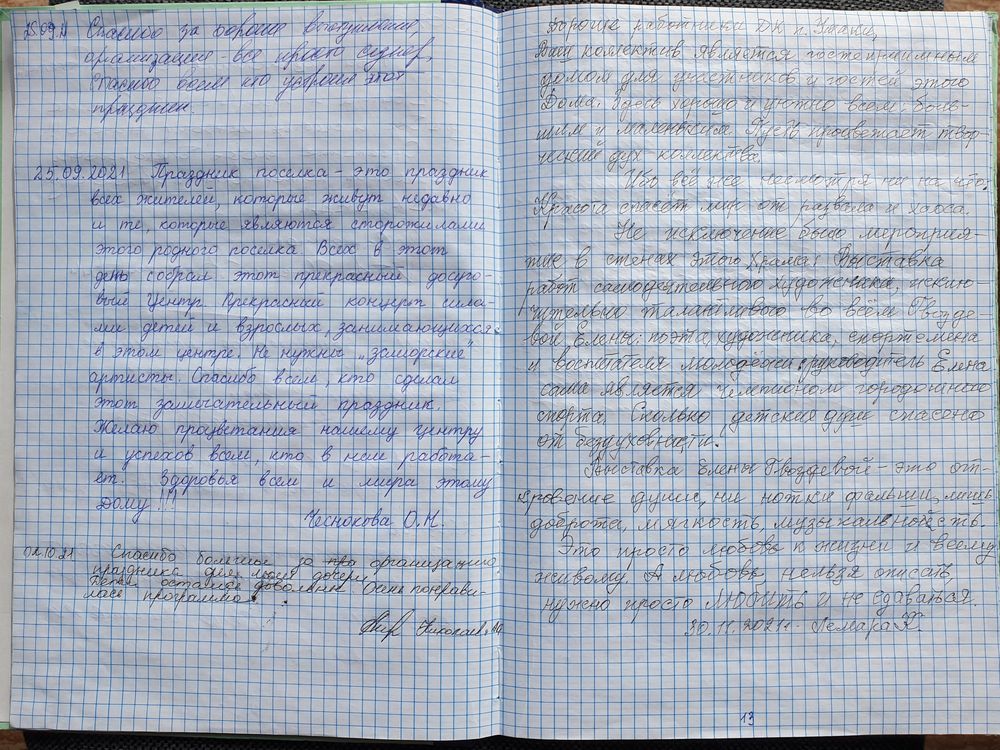 25.09.21 Спасибо за
организацию - все просто супер,
Спасибо всем кто устроил этот
праздник.
25.09.2021 Праздник поселка - это праздник
всех жителей, которые живут недавно
и те, которые являются сторожилами
этого родного поселка. Всех в этот
день собрал этот прекрасный досуго-
вый центр. Прекрасный концерт сила-
ми детей и взрослых, занимающихся
в этом центре. Не нужны „заморские"
артисты. Спасибо всем, кто сделал
этот замечательный праздник.
Желаю процветания нашему центру
и успехов всем, кто в нем работа-
ет. Здоровья всем и мира этому
Дому!!!
Чеснокова О.Н.
02.10.21 Спасибо большое за организацию
праздника для моей дочери,
Дети остались довольны. Очень понрави-
лась программа.
Дорогие работники ДК п.
Ваш коллектив является гостеприимным
домом для участников и гостей этого
Дома. Здесь хорошо и уютно всем: боль-
шим и маленьким. Пусть процветает твор-
ческий дух коллектива.
Ибо всё же несмотря ни на что:
Красота спасёт мир от развала и хаоса.
Не исключение было мероприя-
тие в стенах этого Храма: Выставка
работ самодеятельного художника, исклю-
чительно талантливого во всём Гвозде-
вой Елены: поэта, художника, спортсмена
и воспитателя молодёжи: руководитель Елена
сама является чемпионом городошного
спорта. Сколько детских душ спасено
от бездуховности.
Выставка Елены Гвоздевой - это от-
кровение души, ни нотки фальши, лишь
доброта, мягкость, музыкальность.
Это просто любовь к жизни и всему
живому. А любовь, нельзя описать,
нужно просто ЛЮБИТЬ и не сдаваться.
30.11.2021. Гемара К.
13